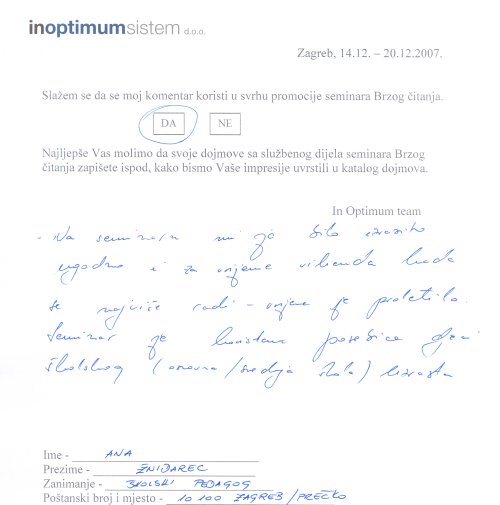 inoptimumsistem d.o.o.
Zagreb, 14.12. – 20.12.2007.
Slažem se da se moj komentar koristi u svrhu promocije seminara Brzog čitanja.
DA NE
Najljepše Vas molimo da svoje dojmove sa službenog dijela seminara Brzog
čitanja zapišete ispod, kako bismo Vaše impresije uvrstili u katalog dojmova.
In Optimum team
- Na seminaru mi je bilo izrazito
ugodno i za vrijeme vikenda kada
se najviše radi - vrijeme je proletilo.
Seminar je koristan posebice djeci
školskog (osnovna/srednja škola) uzrasta
Ime - ANA
Prezime - ŽNIDAREC
Zanimanje - ŠKOLSKI PEDAGOG
Poštanski broj i mjesto - 10 100 ZAGREB/PREČKO